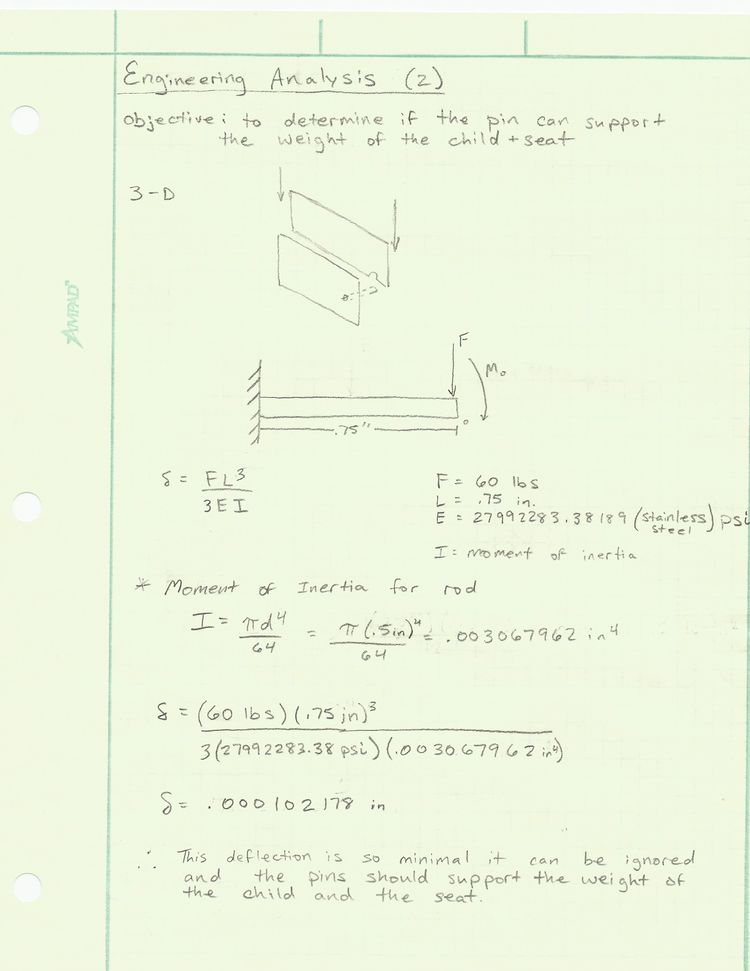 Engineering Analysis (2)
Objective: to determine if the pin can support
the weight of the child + seat
3-D
AMPAD
F
M₀
.75"
δ = FL³
3EI
F = 60 lbs
L = .75 in.
E = 27992283.38189 (stainless steel) psi
I = moment of inertia
* Moment of Inertia for rod
I = πd⁴/64 = π(.5in)⁴/64 = .003067962 in⁴
δ = (60 lbs)(.75 in)³
3(27992283.38 psi)(.003067962 in⁴)
δ = .000102178 in
∴ This deflection is so minimal it can be ignored
and the pins should support the weight of
the child and the seat.